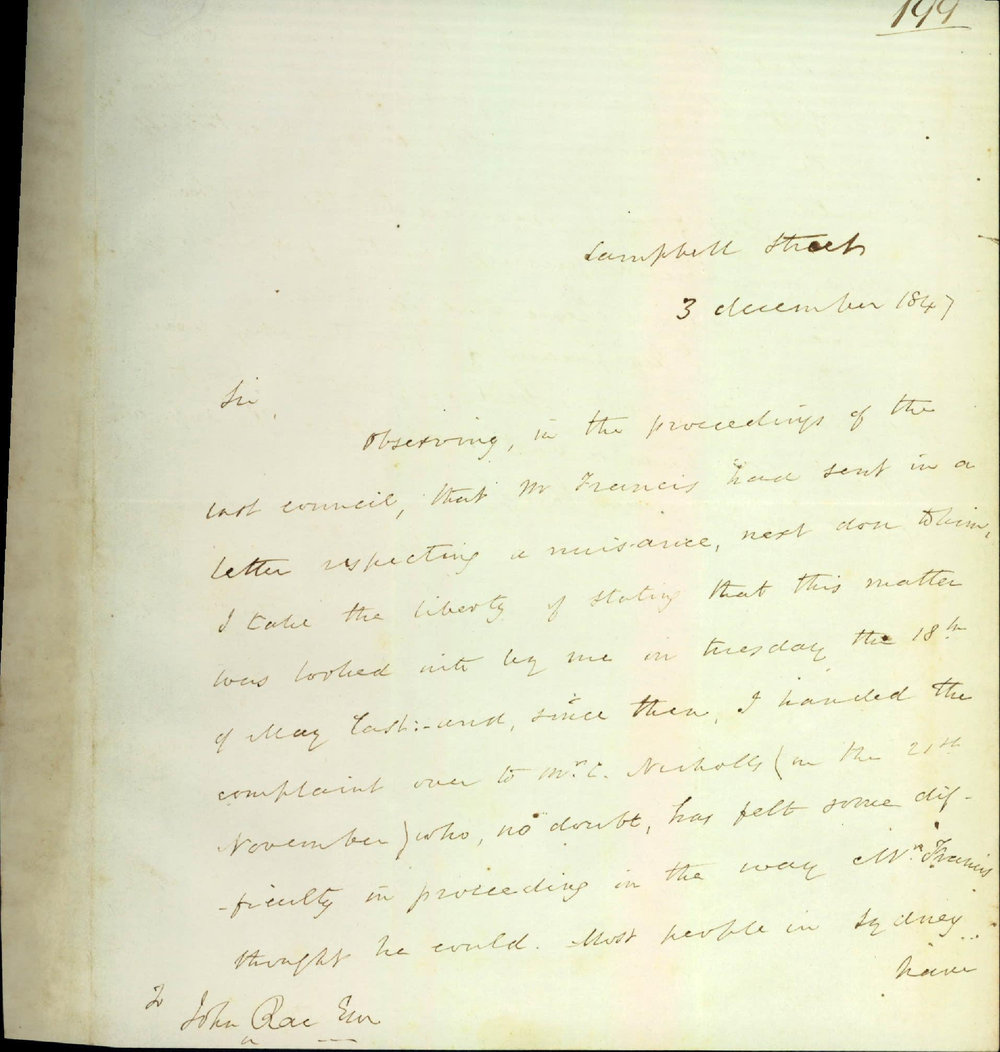 199
Campbell Street
3 december 1847
Sir
Observing, in the proceedings of the
last council, that Mr Francis had sent in a
letter respecting a nuisance, next door to him,
I take the liberty of stating that this matter
was looked into by me on tuesday the 18th
of May last:- and, since then, I handed the
complaint over to Mr. C. Nicholls (on the
November) who, no doubt, has felt some dif-
-ficulty in proceeding in the way Mr. Francis
thought he could. Most people in Sydney
have
To John Rae Esqr